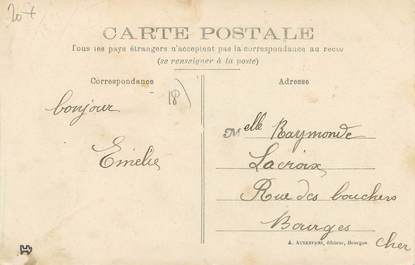 20+
CARTE POSTALE
Tous les pays étrangers n'acceptent pas la correspondance au recto
(se renseigner à la poste)
Correspondance
Adresse
18)
bonjour
Emélie
Melle Raymonde
Lacroix
Rue des bouchers
Bourges
Cher
éditeur, Bourges